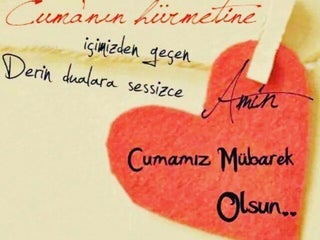 Cuma'nın hürmetine
içimizden geçen
Derin dualara sessizce
Amin
Cumamız Mübarek
Olsun..